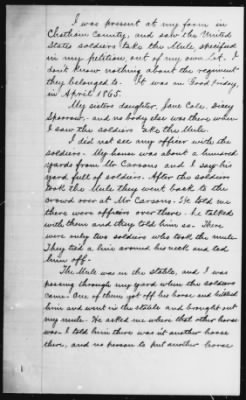 I was present at my farm in
Chatham County, and saw the United
States soldiers take the Mule, specified
in my petition, out of my own lot. I
don't know nothing about the regiment
they belonged to. It was on Good Friday,
in April 1865.
My sisters daughter, Jane Cole, Sicey
Sparrow, and no body else was there when
I saw the soldiers take the Mule.
I did not see any officer with the
soldiers. My house was about a hundred
yards from Mr Carsons and I say his
yard full of soldiers. After the soldiers
took the Mule they went back to the
crowd over at Mr Carsons. He told me
there were officers over there. he talked
with them and they told him so. There
were only two soldiers who took the mule.
They tied a line around his neck and led
him off.
The Mule was in the stable, and I was
passing through my yard when the soldiers
came. One of them got off his horse and hitched
him and went in the stable and brought out
my mule. He asked me where that other horse
was. I told him there was it another horse
there, and no person to put another horse